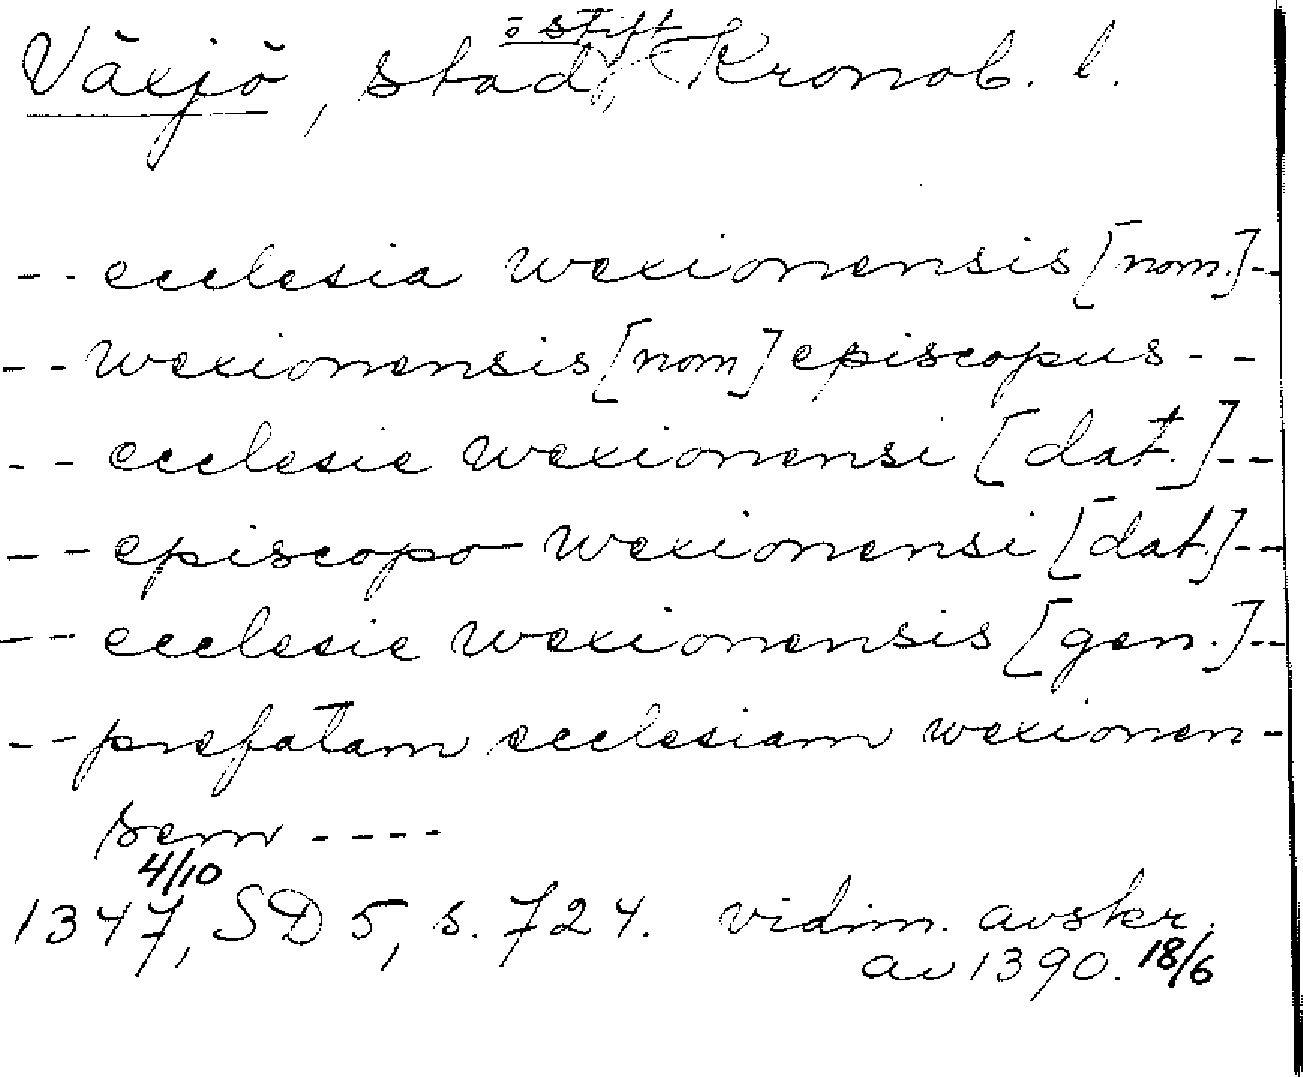 ö stift
Växjö, stad, Kronob. l.
-- ecclesia wexionensis [nom.] --
-- wexionensis [nom] episcopus --
-- ecclesie wexionensi [dat.] --
-- episcopo wexionensi [dat.] --
-- ecclesie wexionensis [gen.] --
-- prefatam ecclesiam wexionen-
sem ----
4/10
1347, SD 5, s. 724. vidim. avskr.
av 1390. 18/6